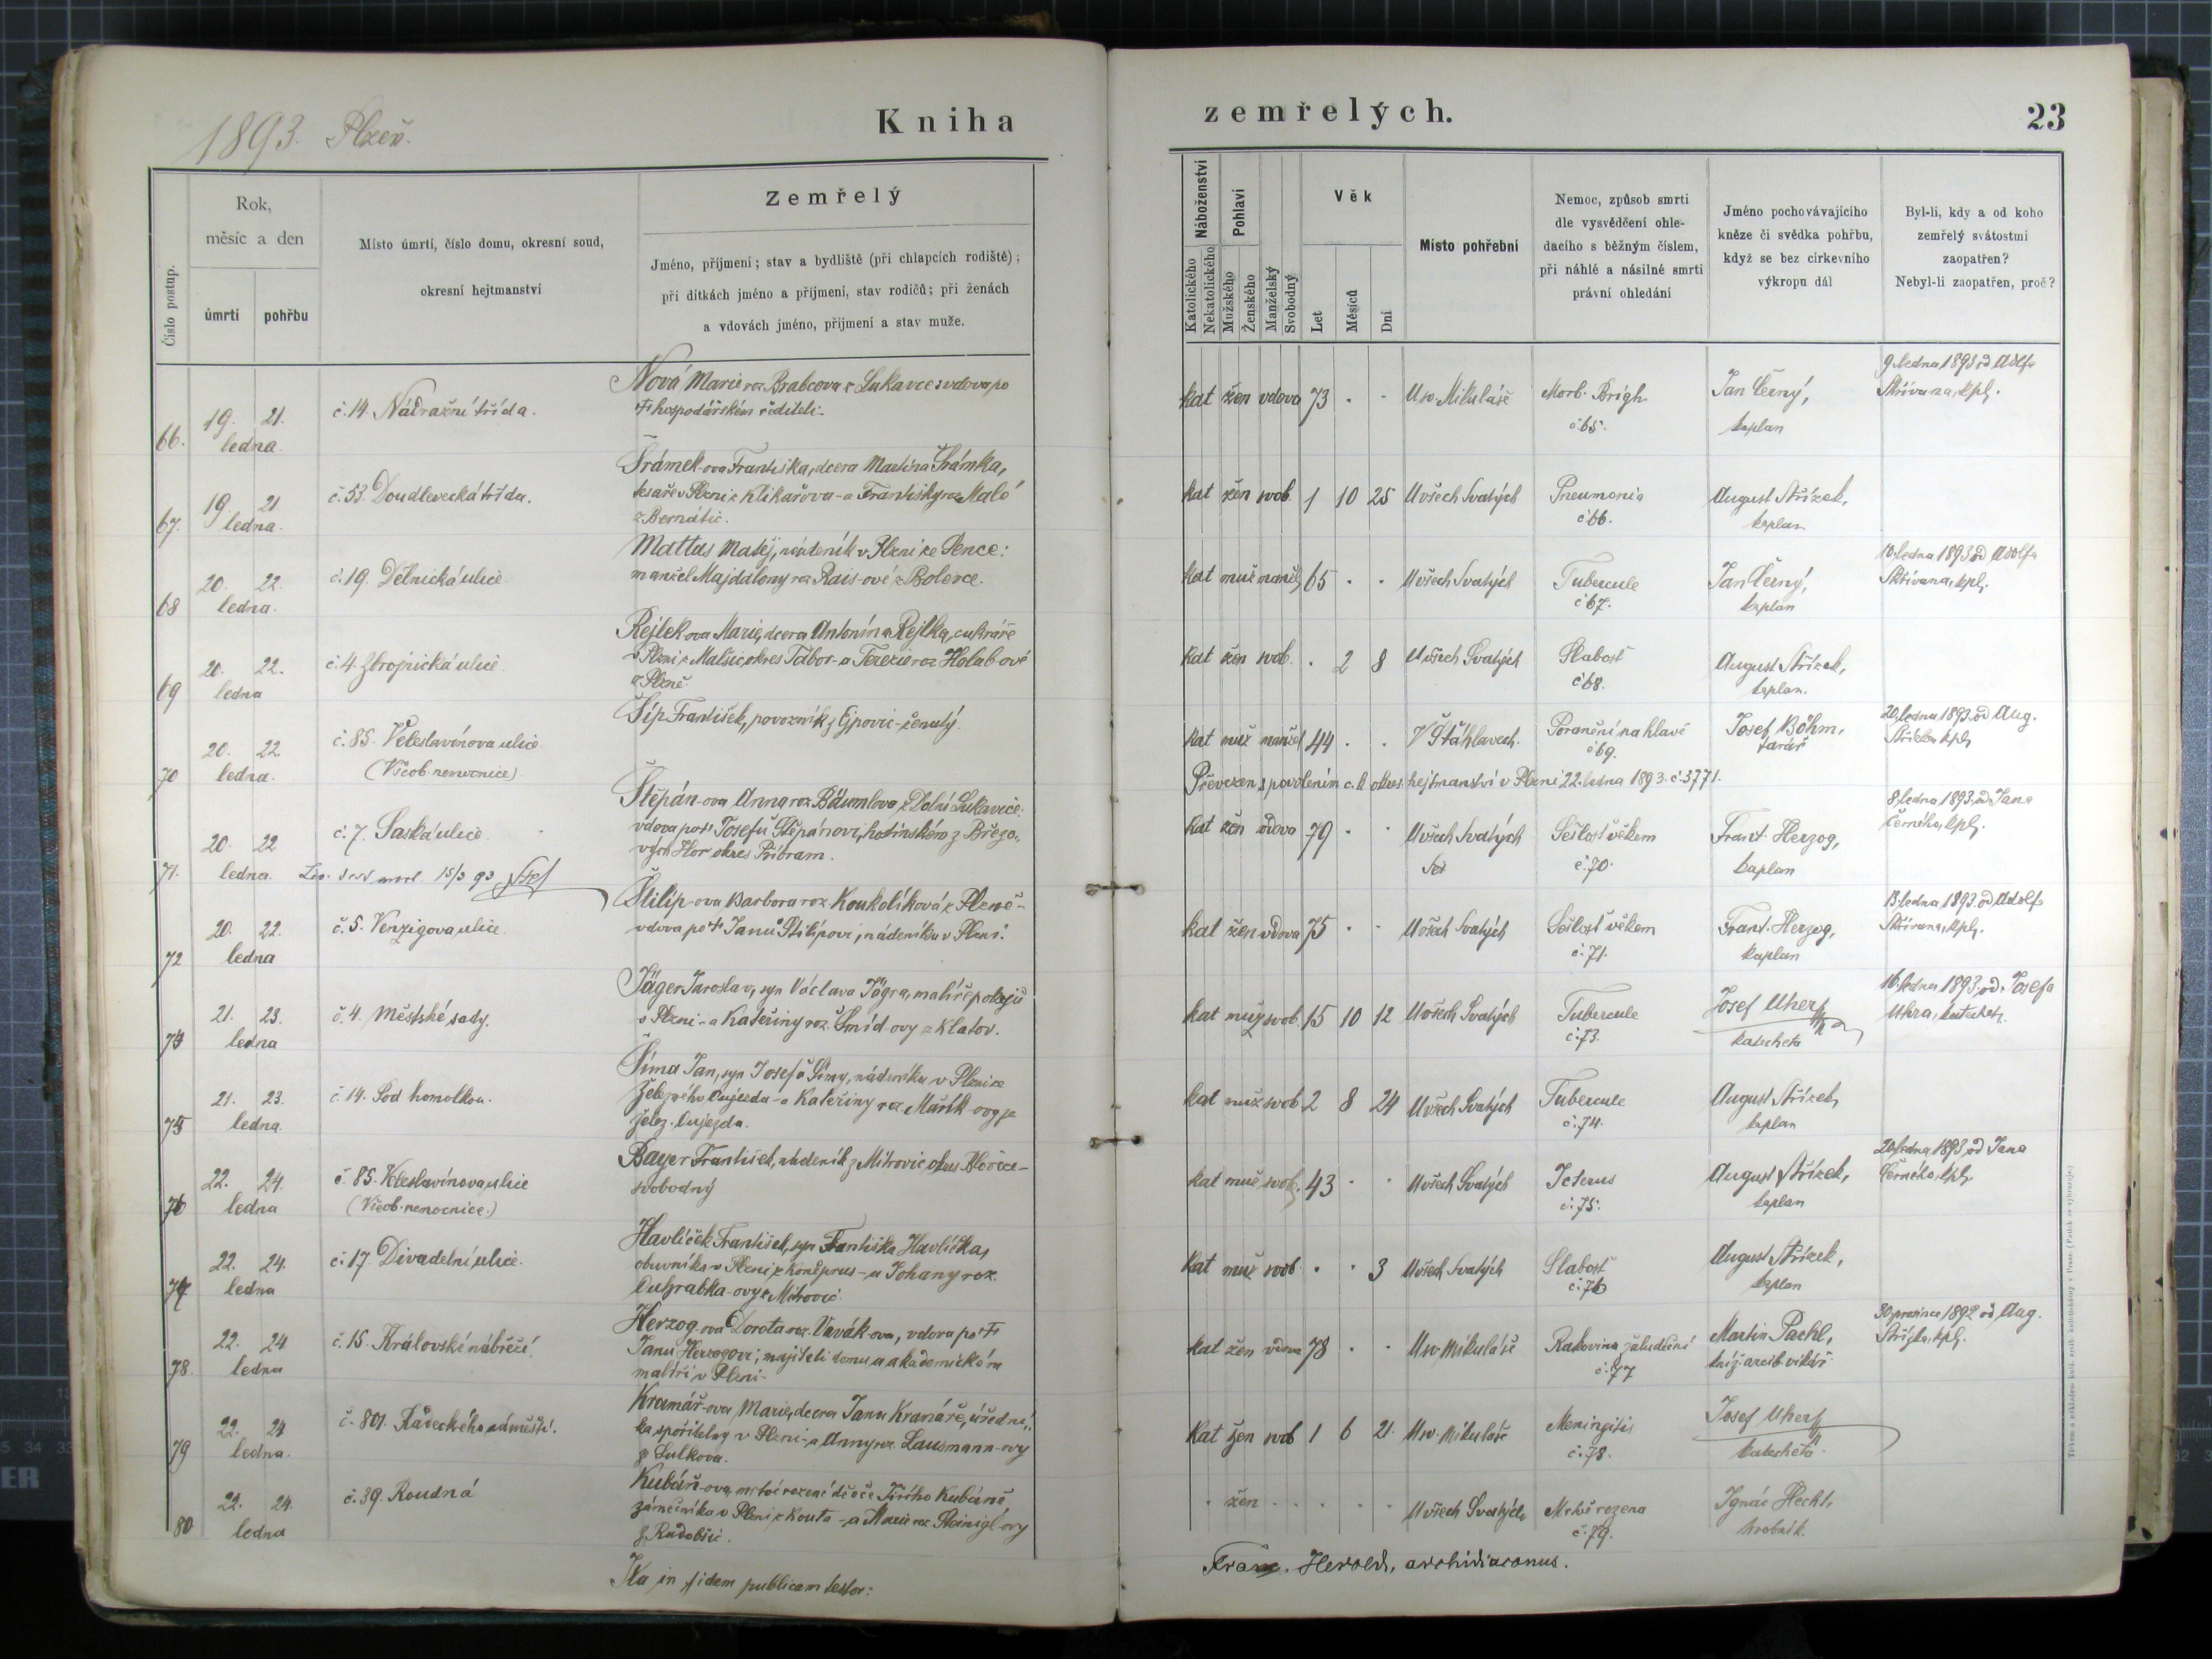 1893. Plzeň.
Kniha
zemřelých.
23
Číslo postup.
Rok,
měsíc a den
úmrtí
pohřbu
Místo úmrtí, číslo domu, okresní soud,
okresní hejtmanství
Zemřelý
Jméno, příjmení; stav a bydliště (při chlapcích rodiště);
při dítkách jméno a příjmení, stav rodičů; při ženách
a vdovách jméno, příjmení a stav muže.
Náboženství
Katolického
Nekatolického
Pohlaví
Mužského
Ženského
Manželský
Svobodný
Věk
Let
Měsíců
Dní
Místo pohřební
Nemoc, způsob smrti
dle vysvědčení ohle-
dacího s běžným číslem,
při náhlé a násilné smrti
právní ohledání
Jméno pochovávajícího
kněze či svědka pohřbu,
když se bez církevního
výkropu dál
Byl-li, kdy a od koho
zemřelý svátostmi
zaopatřen?
Nebyl-li zaopatřen, proč?
66. 19. 21. ledna. č. 14. Nádražní třída.
Nová Marie roz. Brabcova z Lukavce vdova po
† hospodářském řediteli.
kat žen vdova 73 · · U sv. Mikuláše Morb. Brigh č. 65. Jan Černý, kaplan
9. ledna 1893 od Adolfa
Skřivana, kpl.
67. 19. 21 ledna. č. 53. Doudlevecká třída.
Šrámek-ova Františka, dcera Martina Šrámka,
tesaře v Plzni z Klikařova - a Františky roz. Malé
z Bernátic.
kat žen svob. 1 10 25 U všech Svatých Pneumonia č. 66. August Střížek, kaplan
68 20. 22. ledna. č. 19. Dělnická ulice.
Mattas Matěj, nádeník v Plzni ze Sence:
manžel Majdaleny roz. Rais-ové z Bolevce.
kat muž manžel 65 · · U všech Svatých Tubercule č. 67. Jan Černý, kaplan
10. ledna 1893 od Adolfa
Skřivana, kpl.
69 20. 22. ledna č. 4. Zbrojnická ulice.
Rejlek ova Marie, dcera Antonína Rejlka, cukráře
v Plzni z Malšic, okres Tábor - a Terezie roz. Holub-ové
z Plzně.
kat žen svob. · 2 8 U všech Svatých Slabosť č. 68. August Střížek, kaplan.
70 20. 22 ledna. č. 85. Veleslavínova ulice
(Všeob. nemocnice)
Šíp František, povozník z Ejpovic - ženatý.
kat muž manžel 44 · · V Šťáhlavech. Poranění na hlavě č. 69. Josef Böhm, farář
20. ledna 1893 od Aug.
Střížka, kpl.
Převezen s povolením c.k. okres. hejtmanství v Plzni 22. ledna 1893. č. 3771.
71. 20. 22 ledna. č. 7. Saská ulice.
15/3 93
Štěpán-ova Anna roz. Bäumlova z Dolní Lukavice:
vdova po † Josefu Štěpánovi, hutinském z Březo-
vých Hor okres Příbram.
kat žen vdova 79 · · U všech Svatých Sešlosť věkem č. 70. Frant. Herzog, kaplan
8. ledna 1893 od Jana
Černého, kpl.
72 20. 22. ledna č. 5. Venzigova ulice.
Štilip-ova Barbora roz. Koukolíková z Plzně -
vdova po † Janu Štilipovi, nádeníku v Plzni.
kat žen vdova 75 · · U všech Svatých Sešlosť věkem č. 71. Frant. Herzog, kaplan
13. ledna 1893 od Adolfa
Skřivana, kpl.
74 21. 23. ledna č. 4. Městské sady.
Jäger Jaroslav, syn Václava Jägra, malíře pokojů
v Plzni - a Kateřiny roz. Šmíd-ovy z Klatov.
kat muž svob. 15 10 12 U všech Svatých Tubercule č. 73. Josef Uher, katecheta
16. ledna 1893, od Josefa
Uhra, katechety.
75 21. 23. ledna. č. 14. Pod homolkou.
Šíma Jan, syn Josefa Šímy, nádeníka v Plzni ze
Železného Oujezda - a Kateřiny roz. Mařík-ovy ze
Želez. Oujezda.
kat muž svob. 2 8 24 U všech Svatých Tubercule č. 74. August Střížek, kaplan
76 22. 24. ledna č. 85. Veleslavínova ulice
(Všeob. nemocnice.)
Bayer František, nádeník z Mítrovic, okres Blovice -
svobodný
kat muž svob. 43 · · U všech Svatých Icterus č. 75. August Střížek, kaplan
20. ledna 1893 od Jana
Černého, kpl.
77 22. 24. ledna č. 17. Divadelní ulice.
Havlíček František, syn Františka Havlíčka,
obuvníka v Plzni z Koněprus - a Johany roz.
Ouhrabka-ovy z Mítrovic.
kat muž svob. · · 3 U všech Svatých Slabosť č. 76 August Střížek, kaplan
78 22. 24 ledna č. 15. Královské nábřeží.
Herzog-ova Dorota roz. Vavák-ova, vdova po †
Janu Herzogovi, majiteli domu a akademickém
malíři v Plzni.
kat žen vdova 78 · · U sv. Mikuláše Rakovina žaludeční č. 77 Martin Pachl, kníž. arcib. vikář
30. prosince 1892 od Aug.
Střížka, kpl.
79 22. 24 ledna. č. 801. Radeckého náměstí.
Kramář-ova Marie, dcera Jana Kramáře, úřední-
ka spořitelny v Plzni - a Anny roz. Lausmann-ovy
ze Sulkova.
Kat žen svob 1 6 21. U sv. Mikuláše Meningitis č. 78. Josef Uher, katecheta.
80 22. 24. ledna č. 39. Roudná
Kubáň-ova, mrtvě rozené děvče Jiřího Kubáně,
zámečníka v Plzni z Kouta - a Marie roz. Steinigl-ovy
z Radobčic.
· žen · · · · U všech Svatých Mrtvě rozena č. 79. Ignác Hecht, hrobník.
Ita in fidem publicam testor:
Franc. Herold, archidiaconus.